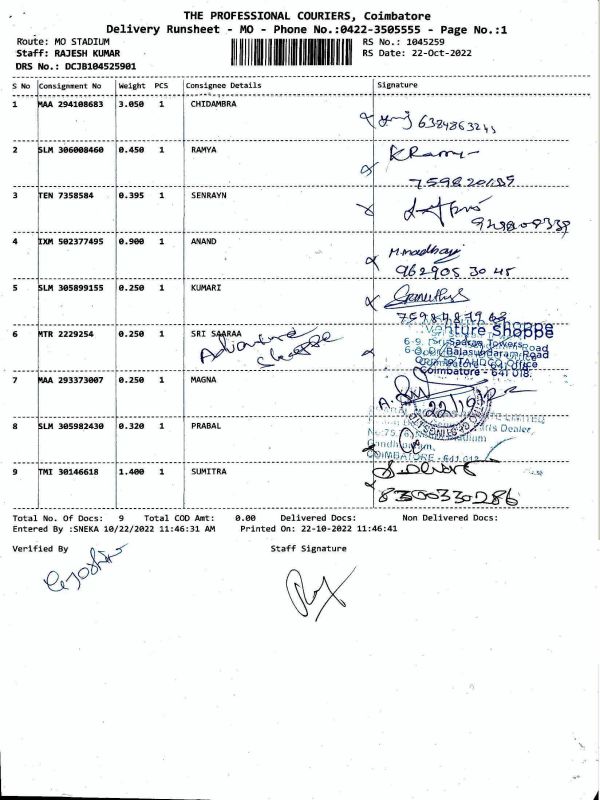 THE PROFESSIONAL COURIERS, Coimbatore
Delivery Runsheet - MO - Phone No.:0422-3505555 - Page No.:1
Route: MO STADIUM RS No.: 1045259
Staff: RAJESH KUMAR RS Date: 22-Oct-2022
DRS No.: DCJB104525901
S No Consignment No Weight PCS Consignee Details Signature
1 MAA 294108683 3.050 1 CHIDAMBRA
2 SLM 306008460 0.450 1 RAMYA
3 TEN 7358584 0.395 1 SENRAYN
4 IXM 502377495 0.900 1 ANAND
M.madhavi
962905 30 45
5 SLM 305899155 0.250 1 KUMARI
Venture Shoppe
6 MTR 2229254 0.250 1 SRI SAARAA
6-9, Sri Sadran Towers
Dr. Balasundaram Road
Opp. TAHDCO Office
Coimbatore - 641 018.
7 MAA 293373007 0.250 1 MAGNA
22/10/22
8 SLM 305982430 0.320 1 PRABAL
COIMBATORE - 641 018
9 TMI 30146618 1.400 1 SUMITRA
8300330286
Total No. Of Docs: 9 Total COD Amt: 0.00 Delivered Docs: Non Delivered Docs:
Entered By :SNEKA 10/22/2022 11:46:31 AM Printed On: 22-10-2022 11:46:41
Verified By Staff Signature